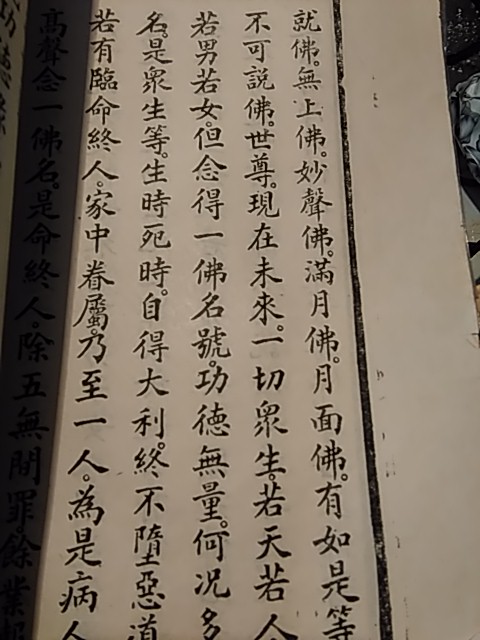 就佛。無上佛。妙聲佛。滿月佛。月面佛。有如是等
不可說佛。世尊。現在未來。一切眾生。若天若人
若男若女。但念得一佛名號。功德無量。何況多
名。是眾生等。生時死時。自得大利。終不墮惡道
若有臨命終人。家中眷屬。乃至一人。為是病人
高聲念一佛名。是命終人。除五無間罪。餘業報